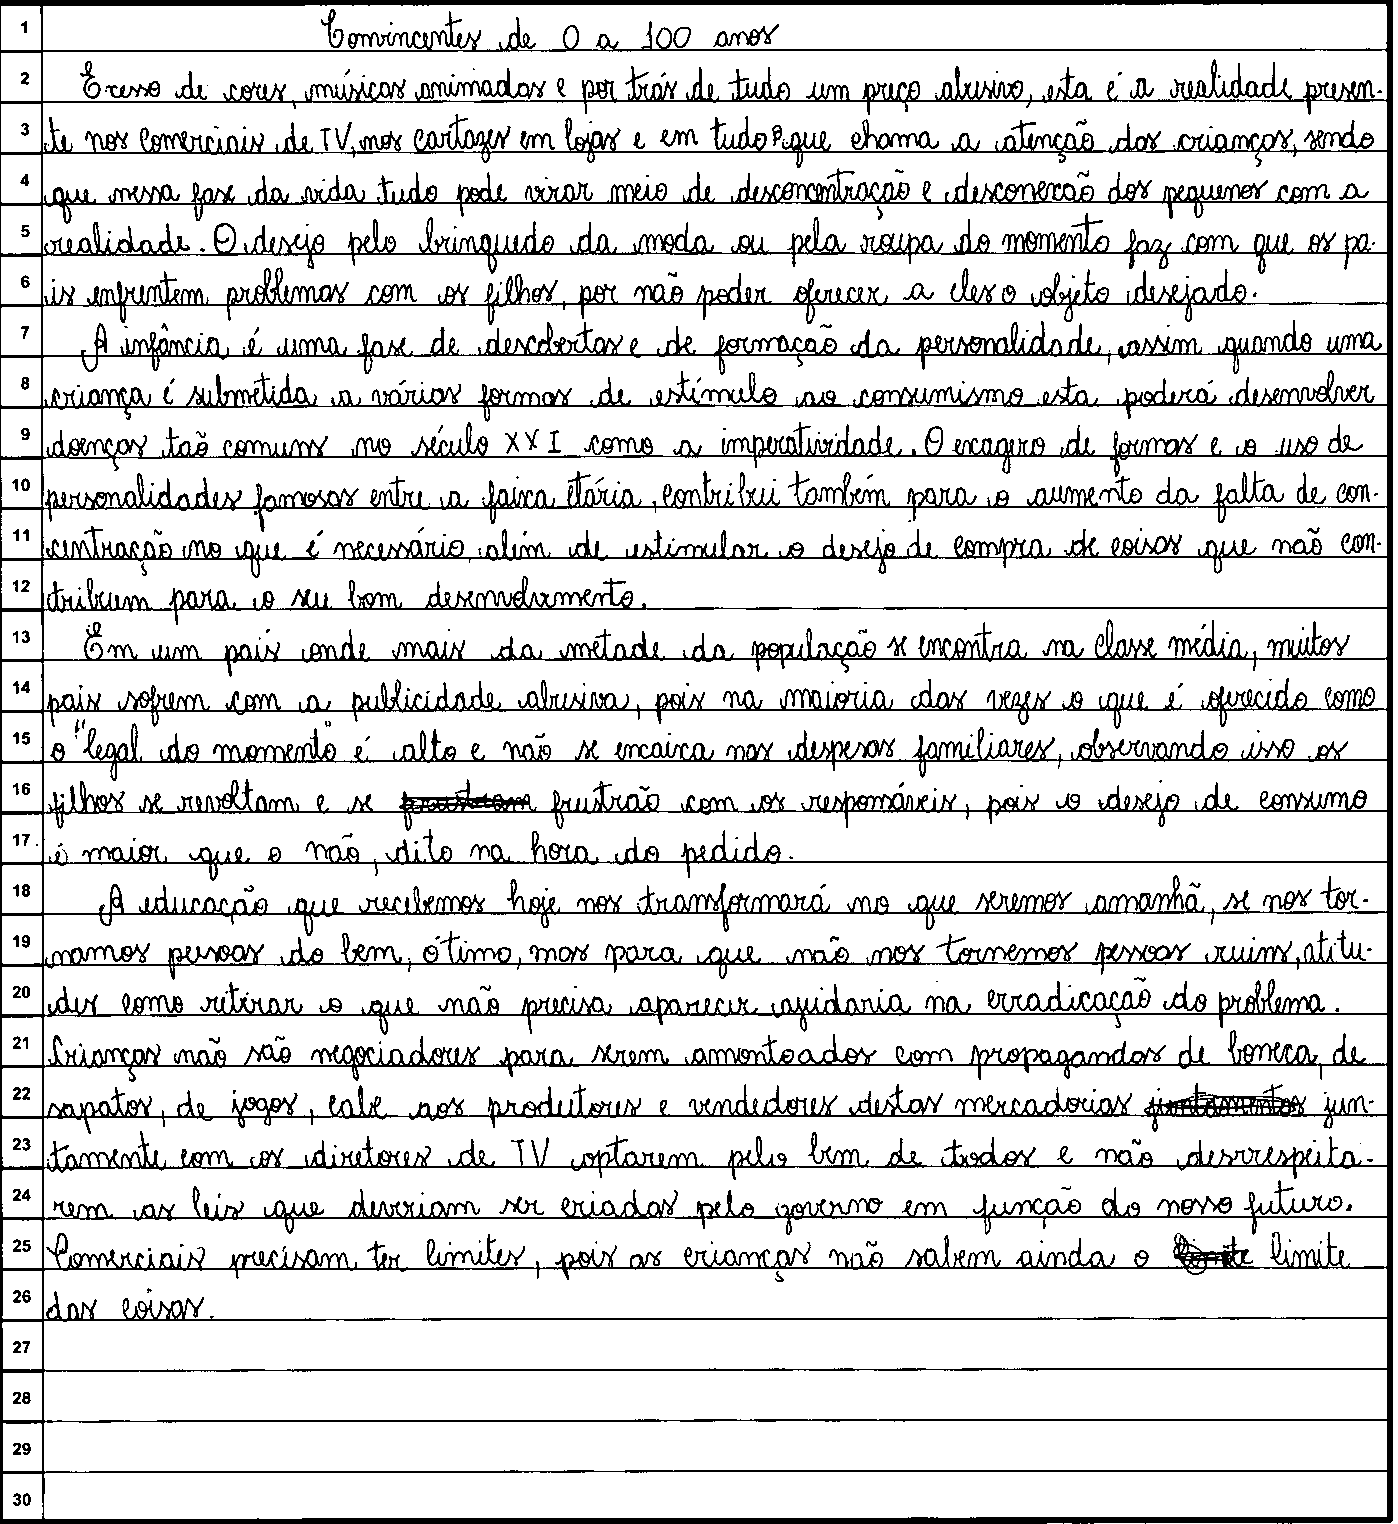 1 Convincentes de 0 a 100 anos
2 Excesso de cores, músicas animadas e por trás de tudo um preço abusivo, esta é a realidade presen-
3 te nos comerciais de TV, nos cartazes em lojas e em tudo que chama a atenção das crianças, sendo
4 que nessa fase da vida tudo pode virar meio de desconcentração e desconexão dos pequenos com a
5 realidade. O desejo pelo brinquedo da moda ou pela roupa do momento faz com que os pa-
6 is enfrentem problemas com os filhos, por não poder oferecer a eles o objeto desejado.
7 A infância é uma fase de descobertas e de formação da personalidade, assim quando uma
8 criança é submetida a várias formas de estímulo ao consumismo esta poderá desenvolver
9 doenças taõ comuns no século XXI como a imperatividade. O exagero de formas e o uso de
10 personalidades famosas entre a faixa etária, contribui também para o aumento da falta de con-
11 centração no que é necessário, além de estimular o desejo de compra de coisas que não con-
12 tribuem para o seu bom desenvolvimento.
13 Em um país onde mais da metade da população se encontra na classe média, muitos
14 pais sofrem com a publicidade abusiva, pois na maioria das vezes o que é oferecido como
15 o "legal do momento" é alto e não se encaixa nas despesas familiares, observando isso os
16 filhos se revoltam e se frustrão com os responsáveis, pois o desejo de consumo
17 é maior que o não, dito na hora do pedido.
18 A educação que recebemos hoje nos transformará no que seremos amanhã, se nos tor-
19 namos pessoas do bem, ótimo, mas para que não nos tornemos pessoas ruins, atitu-
20 des como retirar o que não precisa aparecer ajudaria na erradicação do problema.
21 Crianças não são negociadores para serem amontoados com propagandas de boneca, de
22 sapatos, de jogos, cabe aos produtores e vendedores destas mercadorias jun-
23 tamente com os diretores de TV optarem pelo bem de todos e não desrrespeita-
24 rem as leis que deveriam ser criadas pelo governo em função do nosso futuro.
25 Comerciais precisam ter limites, pois as crianças não sabem ainda o limite
26 das coisas.
27
28
29
30